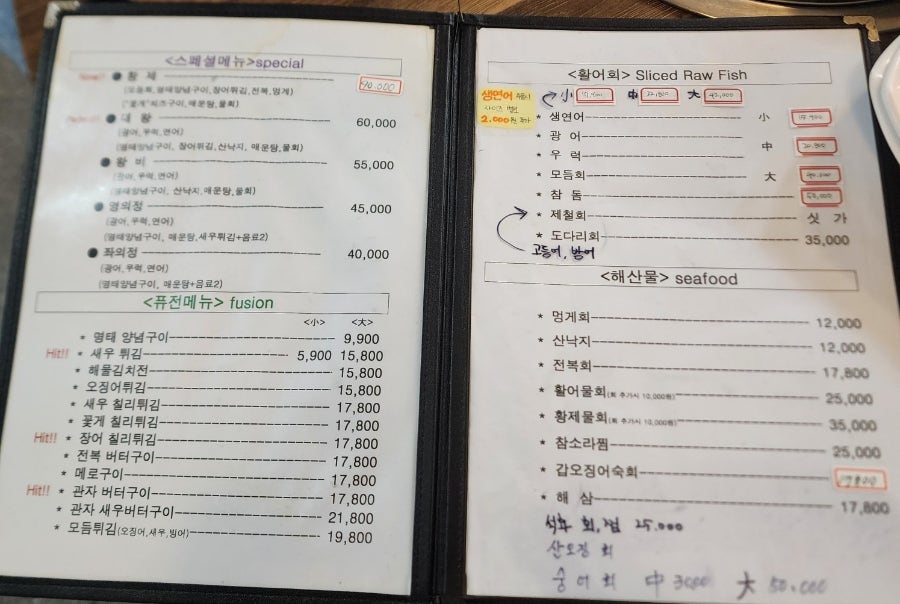 <스페셜메뉴>special
● 황 제
90,000
(모듬회,명태양념구이,장어튀김,전복,멍게)
("꽃게"치즈구이, 매운탕,물회)
● 대 왕 60,000
(광어,우럭,연어)
(명태양념구이, 장어튀김,산낙지, 매운탕,물회)
● 왕 비 55,000
(광어,우럭,연어)
(명태양념구이, 산낙지,매운탕,물회)
● 영의정 45,000
(광어,우럭,연어)
(명태양념구이, 매운탕,새우튀김+음료2)
● 좌의정 40,000
(광어,우럭,연어)
(명태양념구이, 매운탕+음료2)
<퓨전메뉴> fusion
<小> <大>
* 명태 양념구이 9,900
Hit!! * 새우 튀김 5,900 15,800
* 해물김치전 15,800
* 오징어튀김 15,800
* 새우 칠리튀김 17,800
* 꽃게 칠리튀김 17,800
Hit!! * 장어 칠리튀김 17,800
* 전복 버터구이 17,800
* 메로구이 17,800
Hit!! * 관자 버터구이 17,800
* 관자 새우버터구이 21,800
* 모듬튀김(오징어,새우,빙어) 19,800
<활어회> Sliced Raw Fish
생연어
2,000원
小 中 大
* 생연어 小
* 광 어
* 우 럭 中
* 모듬회 大
* 참 돔
* 제철회 싯 가
* 도다리회 35,000
고등어, 방어
<해산물> seafood
* 멍게회 12,000
* 산낙지 12,000
* 전복회 17,800
* 활어물회(회 추가시 10,000원) 25,000
* 황제물회(회 추가시 10,000원) 35,000
* 참소라찜 25,000
* 갑오징어숙회 19,800
* 해 삼 17,800
석화 회,찜 25,000
산오징 회
숭어회 中 大 50,000